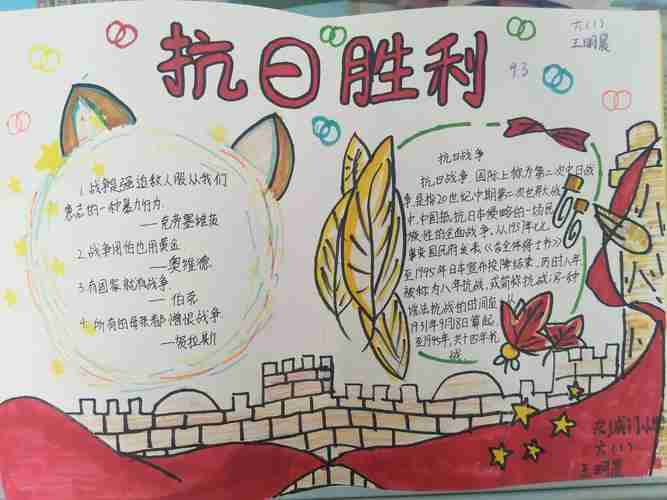 抗日胜利
六(1)
王明晨
9.3
1.战争是强迫敌人服从我们
意志的一种暴力行为
——克劳塞维茨
2.战争用怕也用黄金
——奥维德
3.有国家就有战争
——伯克
4.所有的母亲都憎恨战争
——贺拉斯
抗日战争
抗日战争国际上称为第二次中日战
争是指20世纪中期第二次世界大战
中,中国抵抗日本侵略的一场民
族性的全面战争,从1937年七七
至1945年日本宣布投降结束,历时八年
被称为八年抗战,或简称抗战;另一种
说法抗战的时间自
1931年9月18日算起,
至1945年,共十四年抗
战
六(1)
王明晨